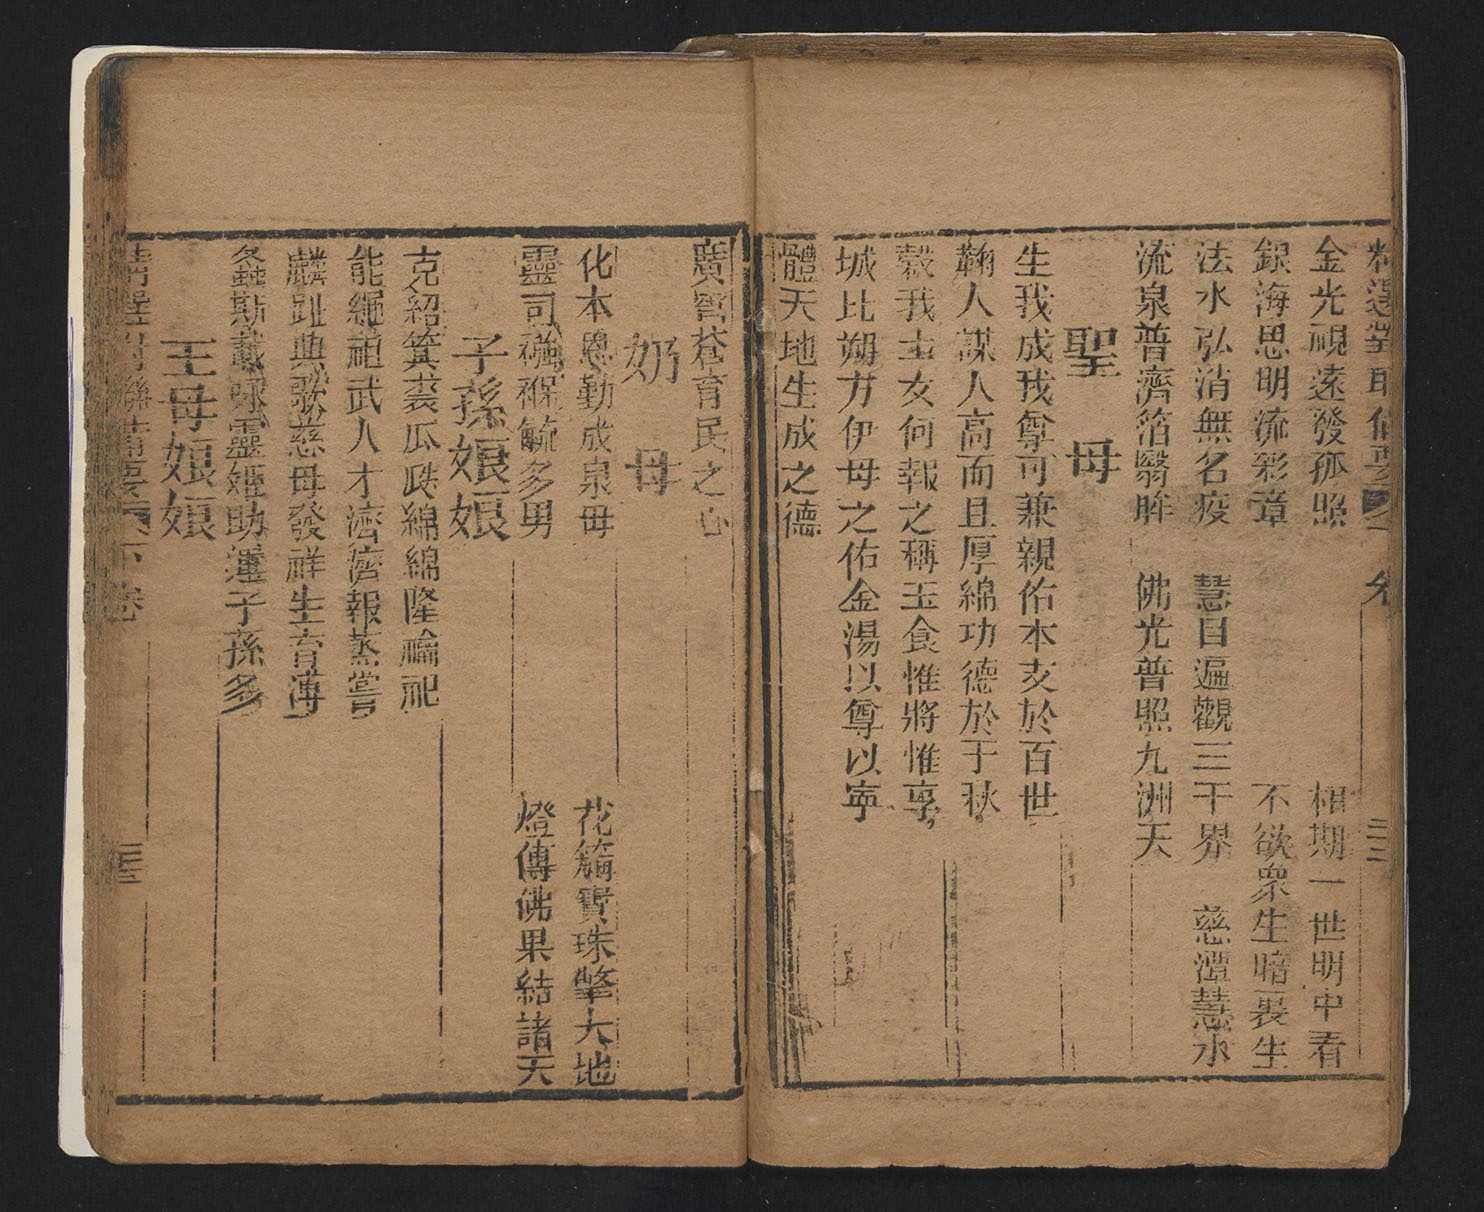 精選對聯備要 下卷 三二
金光視遠發孤照 相期一世明中看
銀海思明流彩章 不欲衆生暗裏生
法水弘消無名疫 慧目遍觀三千界 慈潭慧水
流泉普濟箔翳眸 佛光普照九洲天
聖母
生我成我尊可兼親佑本支於百世
鞠人謀人高而且厚綿功德於千秋
穀我士女何報之稱玉食惟將惟享
城比朔方伊母之佑金湯以尊以寧
體天地生成之德
廣穹蒼育民之心
奶母
化本恩勤成泉毋 花籍寶珠擎大地
靈司襁褓毓多男 燈傳佛果結諸天
子孫娘娘
克紹箕裘瓜瓞綿綿隆禴祀
能繩祖武人才濟濟報蒸嘗
麟趾典歌慈母發祥生育溥
螽斯載咏靈姬助運子孫多
王母娘娘
精選對聯備要 下卷 三三